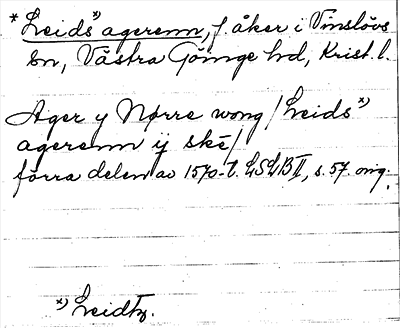 * Leids˟⁾ agerenn, f. åker i Vinslövs
sn, Västra Göinge hd, Krist. l.
Ager y Nørre wong / Leids˟⁾
agerenn ij ské /
förra delen av 1570-t. LSLB II, s. 57. orig.
x) Leidtz.